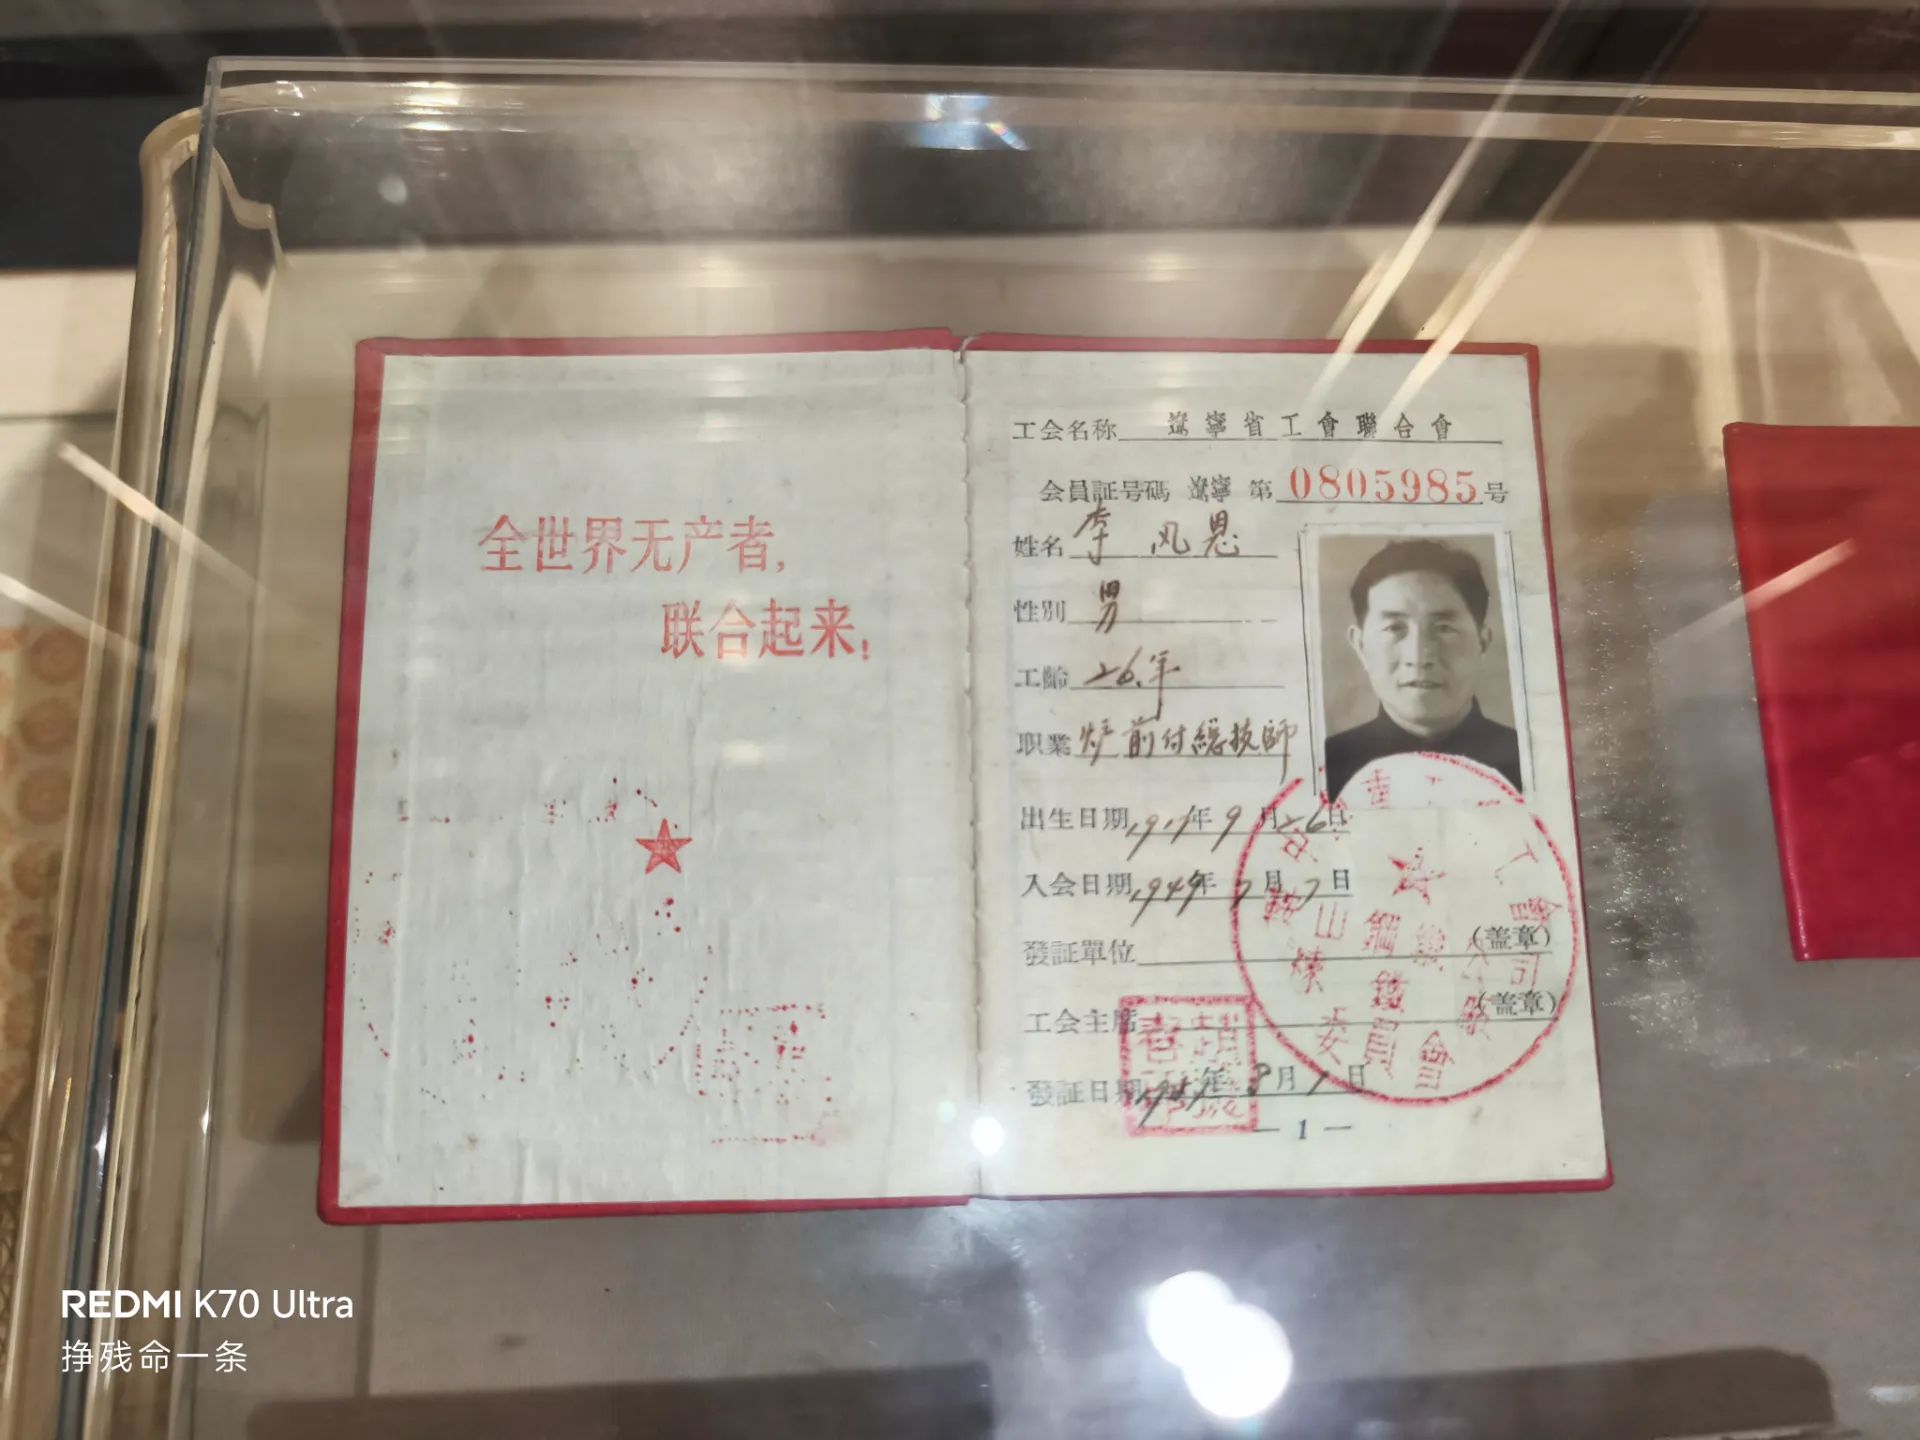 全世界无产者,
联合起来!
工会名称 遼寧省工會聯合會
会員証号碼 遼寧 第 0805985 号
姓名 李风恩
性别 男
工齡 26年
职業 炉前付總技師
出生日期 191 年 9 月 26 日
入会日期 1949 年 7 月 7 日
發証單位 (盖章)
工会主席 (盖章)
發証日期 年 月 1 日
— 1 —
鞍山鋼鐵公司
煉鐵
委員會
REDMI K70 Ultra
挣残命一条